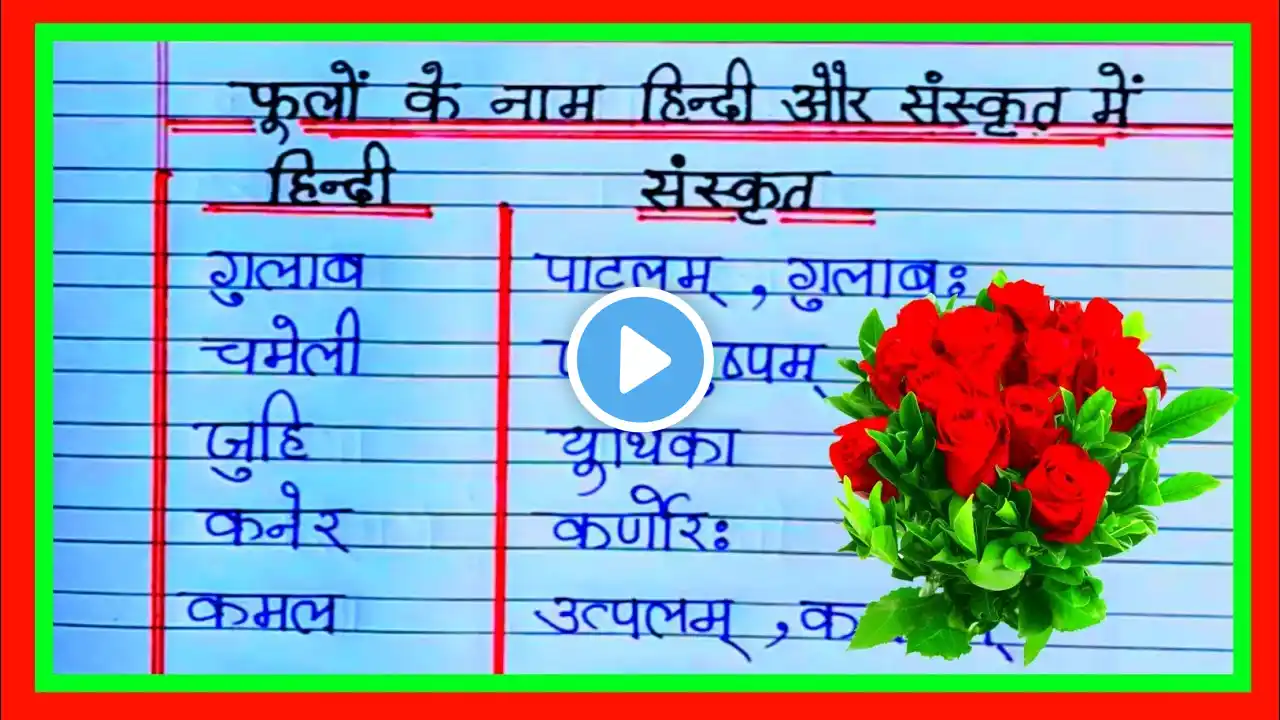 फूलों के नाम हिन्दी और संस्कृत में
हिन्दी संस्कृत
गुलाब पाटलम् , गुलाबः
चमेली
जुहि यूथिका
कनेर कर्णोरः
कमल उत्पलम् ,